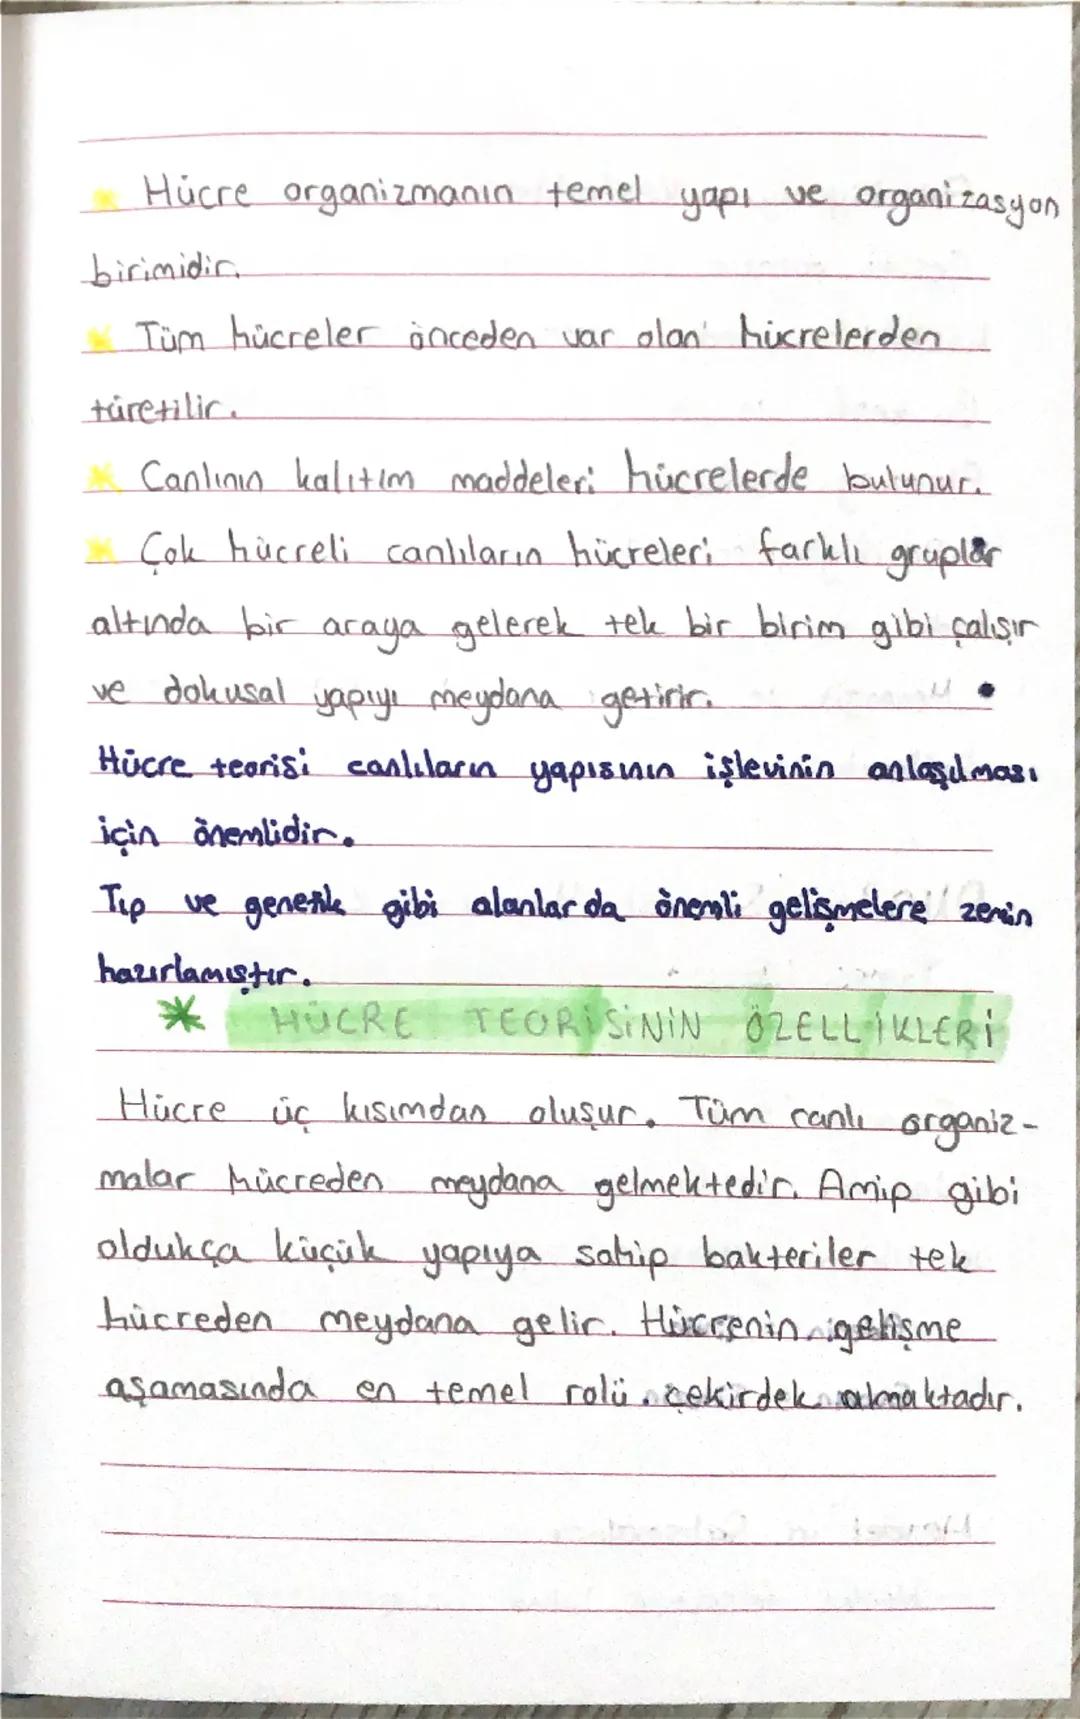 * Hücre organizmanın temel yapı ve organizasyon
birimidir.
* Tüm hücreler önceden var olan hücrelerden
türetilir.
* Canlının kalıtım maddeleri hücrelerde bulunur.
* Çok hücreli canlıların hücreleri farklı gruplar
altında bir araya gelerek tek bir birim gibi çalışır
ve dokusal yapıyı meydana getirir.
Hücre teorisi canlıların yapısının işlevinin anlaşılması
için önemlidir.
Tıp ve genetik gibi alanlarda önemli gelişmelere zemin
hazırlamıştır.
* HÜCRE TEORİSİNİN ÖZELLİKLERİ
Hücre üç kısımdan oluşur. Tüm canlı organiz-
malar hücreden meydana gelmektedir. Amip gibi
oldukça küçük yapıya sahip bakteriler tek
hücreden meydana gelir. Hücrenin gelişme
aşamasında en temel rolü çekirdek almaktadır.